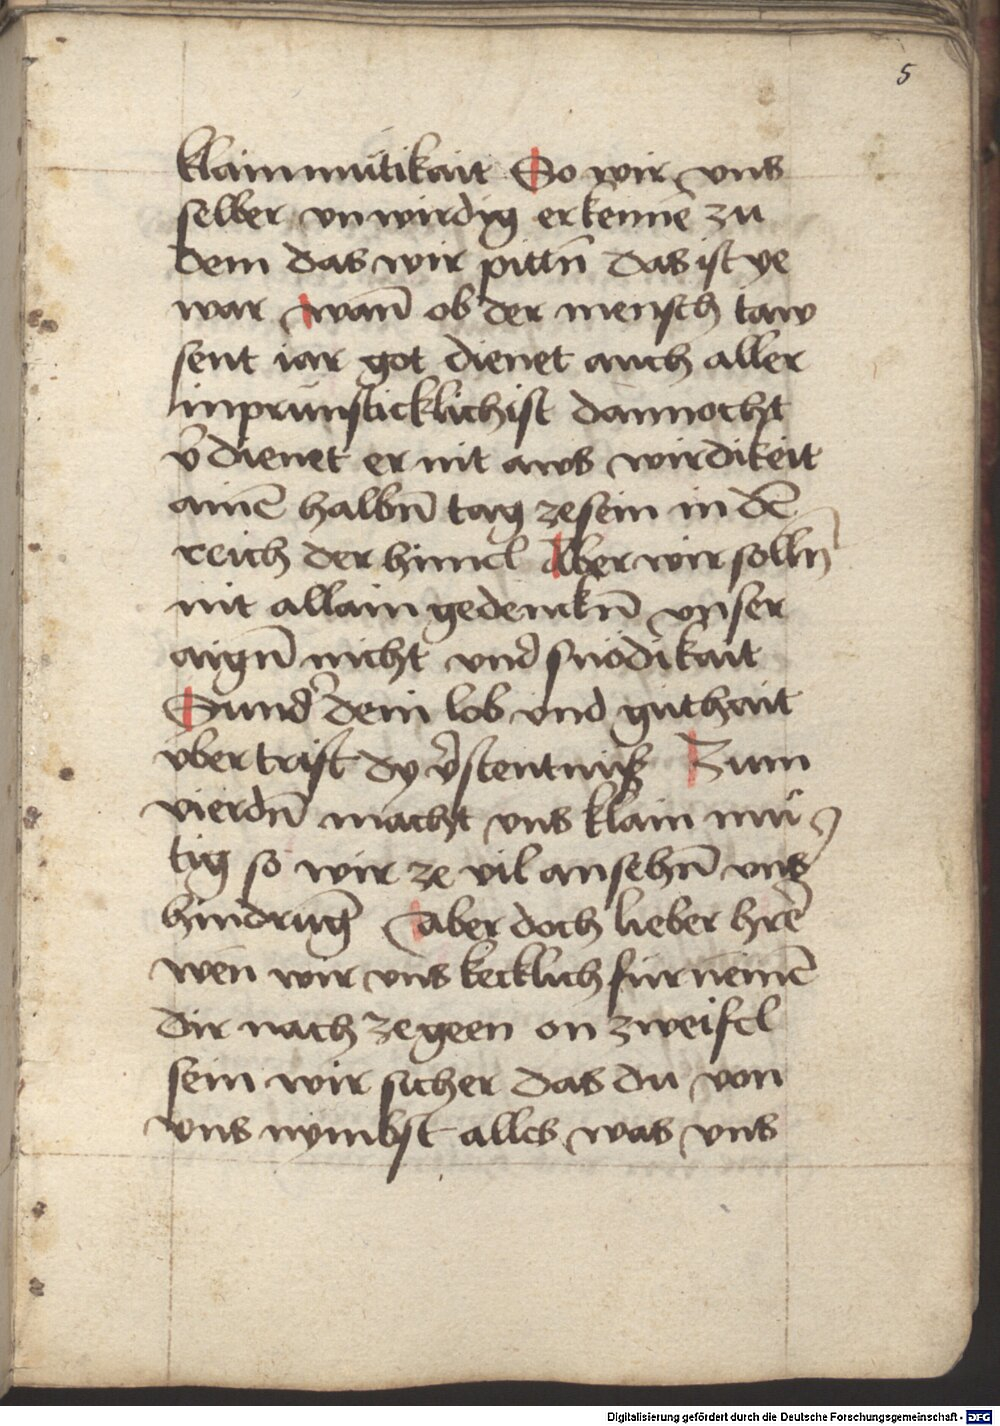 5
klainmütikait So wir vns
selber vnwirdig erkennē zu
dem das wir pittn̄ das ist ye
war wan̄ ob der mensch taw
sent iar got dienet auch aller
inprünsticklichist dannocht
v̾dienet er nit aws wirdikeit
ainē halbn̄ tag ze sein in dē
reich der himel Aber wir solln̄
nit allain gedenckn̄ vnser
aign̄ nicht vnd snödikait
Sund̾ dein lob vnd gůthait
vbertrift dy v̾stentnüß Zum
vierdn̄ macht vns klain mü
tig so wir ze vil ansehn̄ vns̾
hindrūg Aber doch lieber hrē
wen wir vns kecklich für nemē
dir nach ze geen on zweifel
sein wir sicher das du von
vns nymbst alles was vns
Digitalisierung gefördert durch die Deutsche Forschungsgemeinschaft - DFG